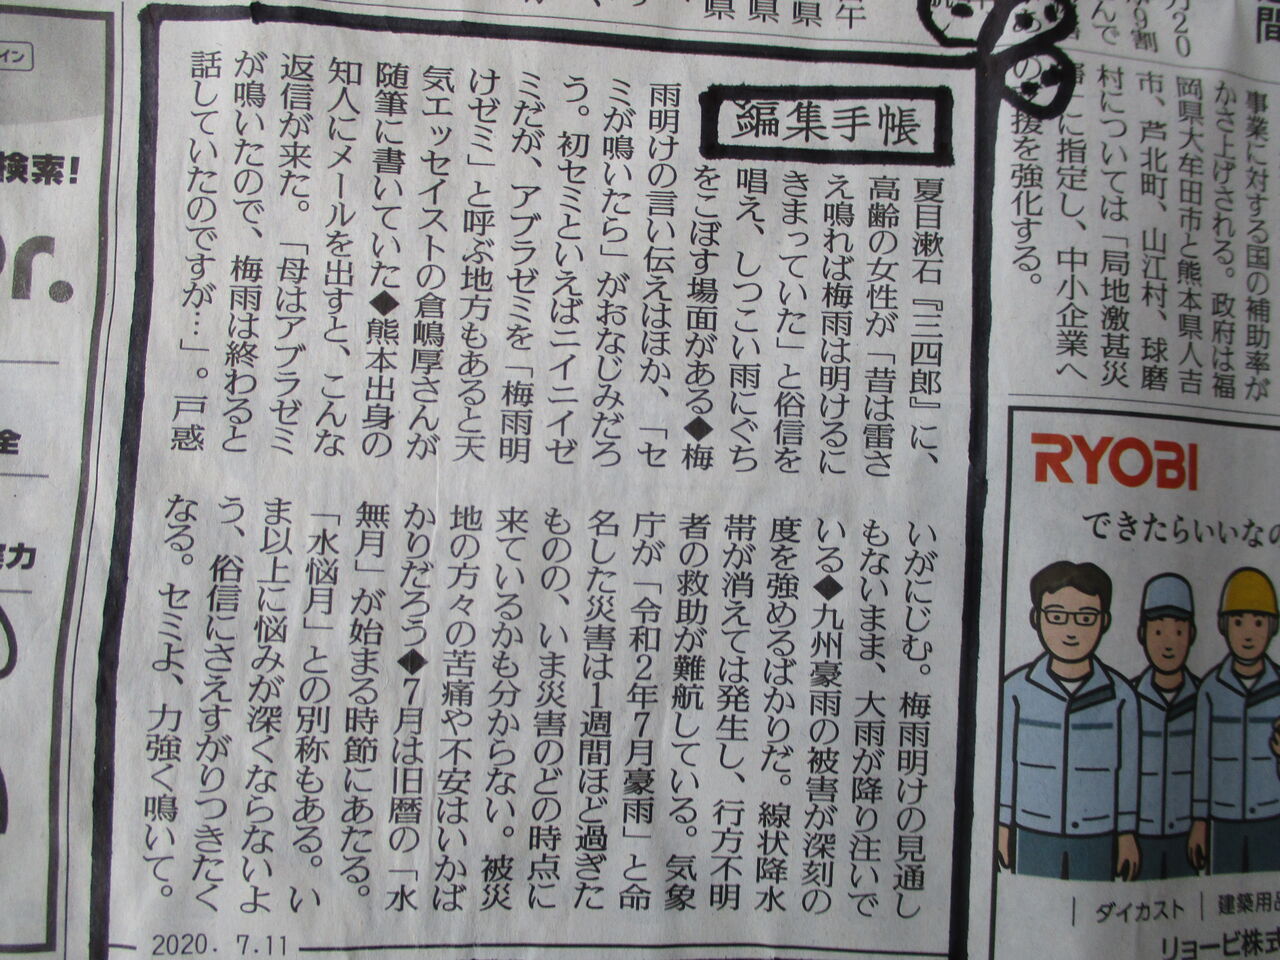 編集手帳
夏目漱石『三四郎』に、
高齢の女性が「昔は雷さ
え鳴れば梅雨は明けるに
きまっていた」と俗信を
唱え、しつこい雨にぐち
をこぼす場面がある◆梅
雨明けの言い伝えはほか、「セ
ミが鳴いたら」がおなじみだろ
う。初セミといえばニイニイゼ
ミだが、アブラゼミを「梅雨明
けゼミ」と呼ぶ地方もあると天
気エッセイストの倉嶋厚さんが
随筆に書いていた◆熊本出身の
知人にメールを出すと、こんな
返信が来た。「母はアブラゼミ
が鳴いたので、梅雨は終わると
話していたのですが…」。戸惑
いがにじむ。梅雨明けの見通し
もないまま、大雨が降り注いで
いる◆九州豪雨の被害が深刻の
度を強めるばかりだ。線状降水
帯が消えては発生し、行方不明
者の救助が難航している。気象
庁が「令和2年7月豪雨」と命
名した災害は1週間ほど過ぎた
ものの、いま災害のどの時点に
来ているかも分からない。被災
地の方々の苦痛や不安はいかば
かりだろう◆7月は旧暦の「水
無月」が始まる時節にあたる。
「水悩月」との別称もある。い
ま以上に悩みが深くならないよ
う、俗信にさえすがりつきたく
なる。セミよ、力強く鳴いて。
2020. 7.11
事業に対する国の補助率が
かさ上げされる。政府は福
岡県大牟田市と熊本県人吉
市、芦北町、山江村、球磨
村については「局地激甚災
に指定し、中小企業へ
の援を強化する。
RYOBI
できたらいいなの
ダイカスト
建築用
リョービ株式
検索!
イン
全
力
月20
9割
んで
県
県
県
間